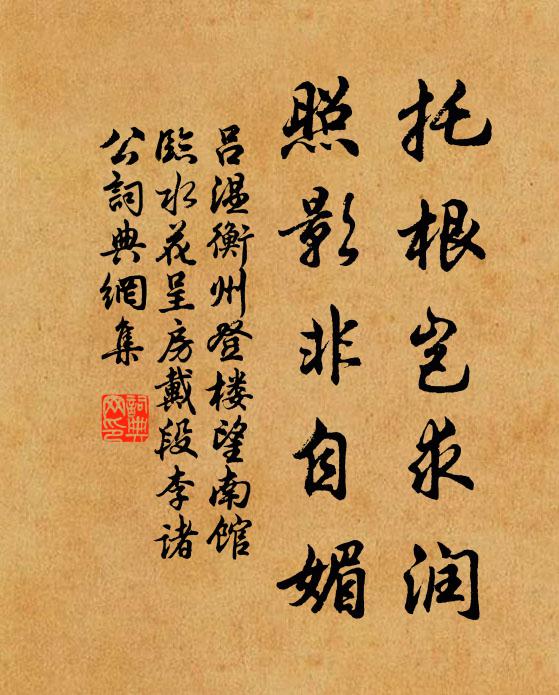 托根岂求润
照影非自媚
吕温衡州登楼望南馆
临水花呈房戴段李诸
公詞典網集
詞典
网印